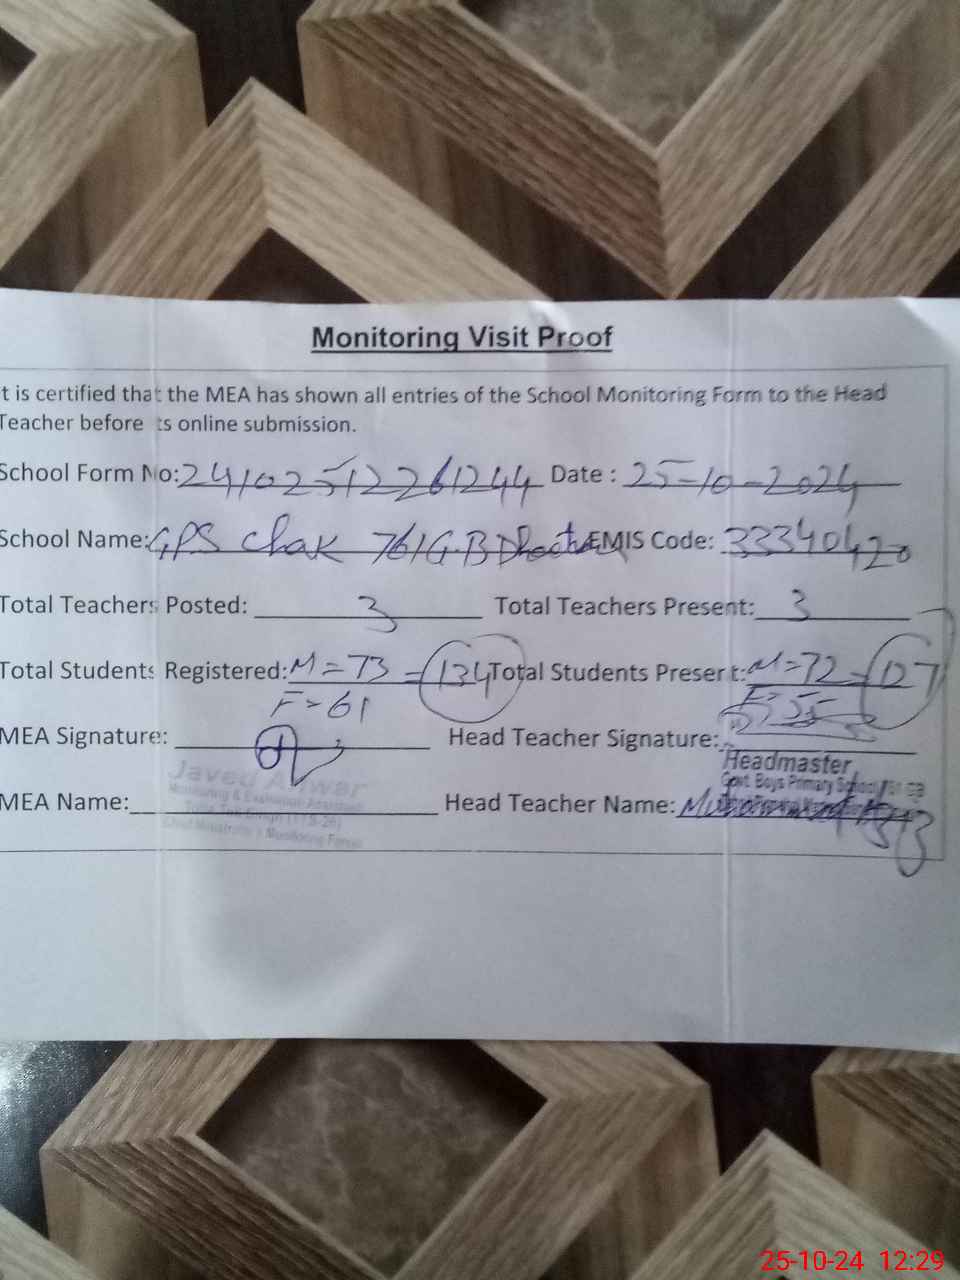 Monitoring Visit Proof
t is certified that the MEA has shown all entries of the School Monitoring Form to the Head
Teacher before ts online submission.
School Form No: 241025122261244 Date : 25-10-2024
School Name: GPS Chak 761 G.B EMIS Code: 33340420
Total Teachers Posted: 3 Total Teachers Present: 3
Total Students Registered: M = 73 = 134 Total Students Present: M = 72 = 127
F = 61 F = 55
MEA Signature: Head Teacher Signature:
Javed Anwar Headmaster
Monitoring & Evaluation Assistant Govt. Boys Primary School 761 GB
MEA Name: Head Teacher Name: Muhammad
Chief Minister's Monitoring Force
25-10-24 12:29